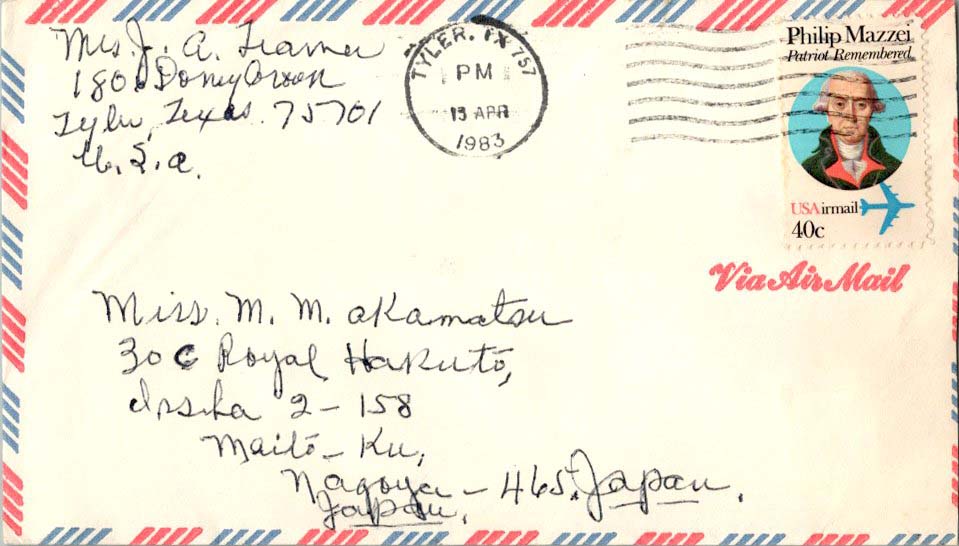 Mrs. J. A. Framer
1806
Tyler, Texas. 75701
U.S.A.
TYLER, TX 757
PM
13 APR
1983
Philip Mazzei
Patriot Remembered
USAirmail
40c
Via Air Mail
Miss. M. M. Akamatsu
30C Royal Hakutō,
Issha 2-158
Maitō-Ku,
Nagoya-465. Japan.
Japan.